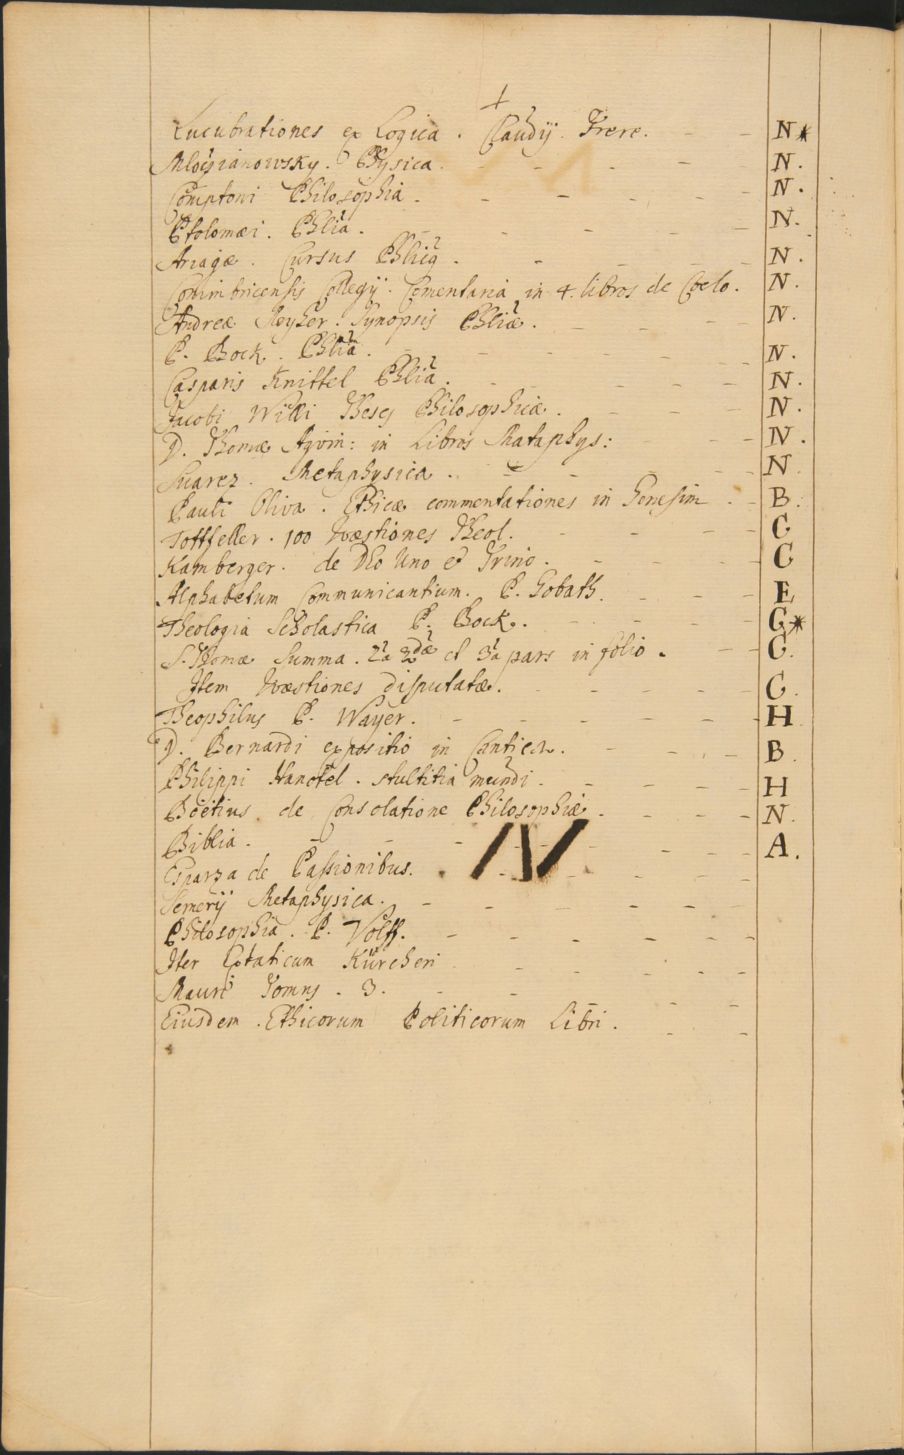 +
Lucubrationes ex Logica . Claudij . Frere. N*
Mlodzianowsky . Physica . N.
Comptoni Philosophia . N.
Ptolomæi . Phlia . N.
Ariagæ . Cursus Phlicq . N.
Conimbricensis Collegij . Comentaria in 4. libros de Coelo . N.
Andreæ Reyher . Synopsis Phliæ . N.
P. Bock . Phlia . N.
Casparis Knittel Phlia . N.
Jacobi Willi Theses Philosophicæ . N.
D. Thomæ Aqvin: in Libros Mataphys: N.
Suarez . Metaphysica . N.
Pauli Oliva . Ethicæ commentationes in Genesim . B.
100 Qvæstiones Theol. G
Kamberger . de Deo Uno et Trino . G
Alphabetum Communicantium . P. Gobath . E
Theologia Scholastica P. Bock . G*
S. Thomæ Summa . 2a 2dæ et 3a pars in folio . G.
Item Qvæstiones disputatæ . G.
Theophilus P. Wayer . H
D. Bernardi expositio in Cantica . B.
Philippi Hanotel . stultitia mundi . H
Boëtius de Consolatione Philosophiæ . N.
Biblia . A.
Esparza de Passionibus . N
Semerij Metaphysica .
Philosophia . P. Wolff .
Iter Extaticum Kürcheri
Mauri Tomus . 3 .
Eiusdem . Ethicorum Politicorum Libri .